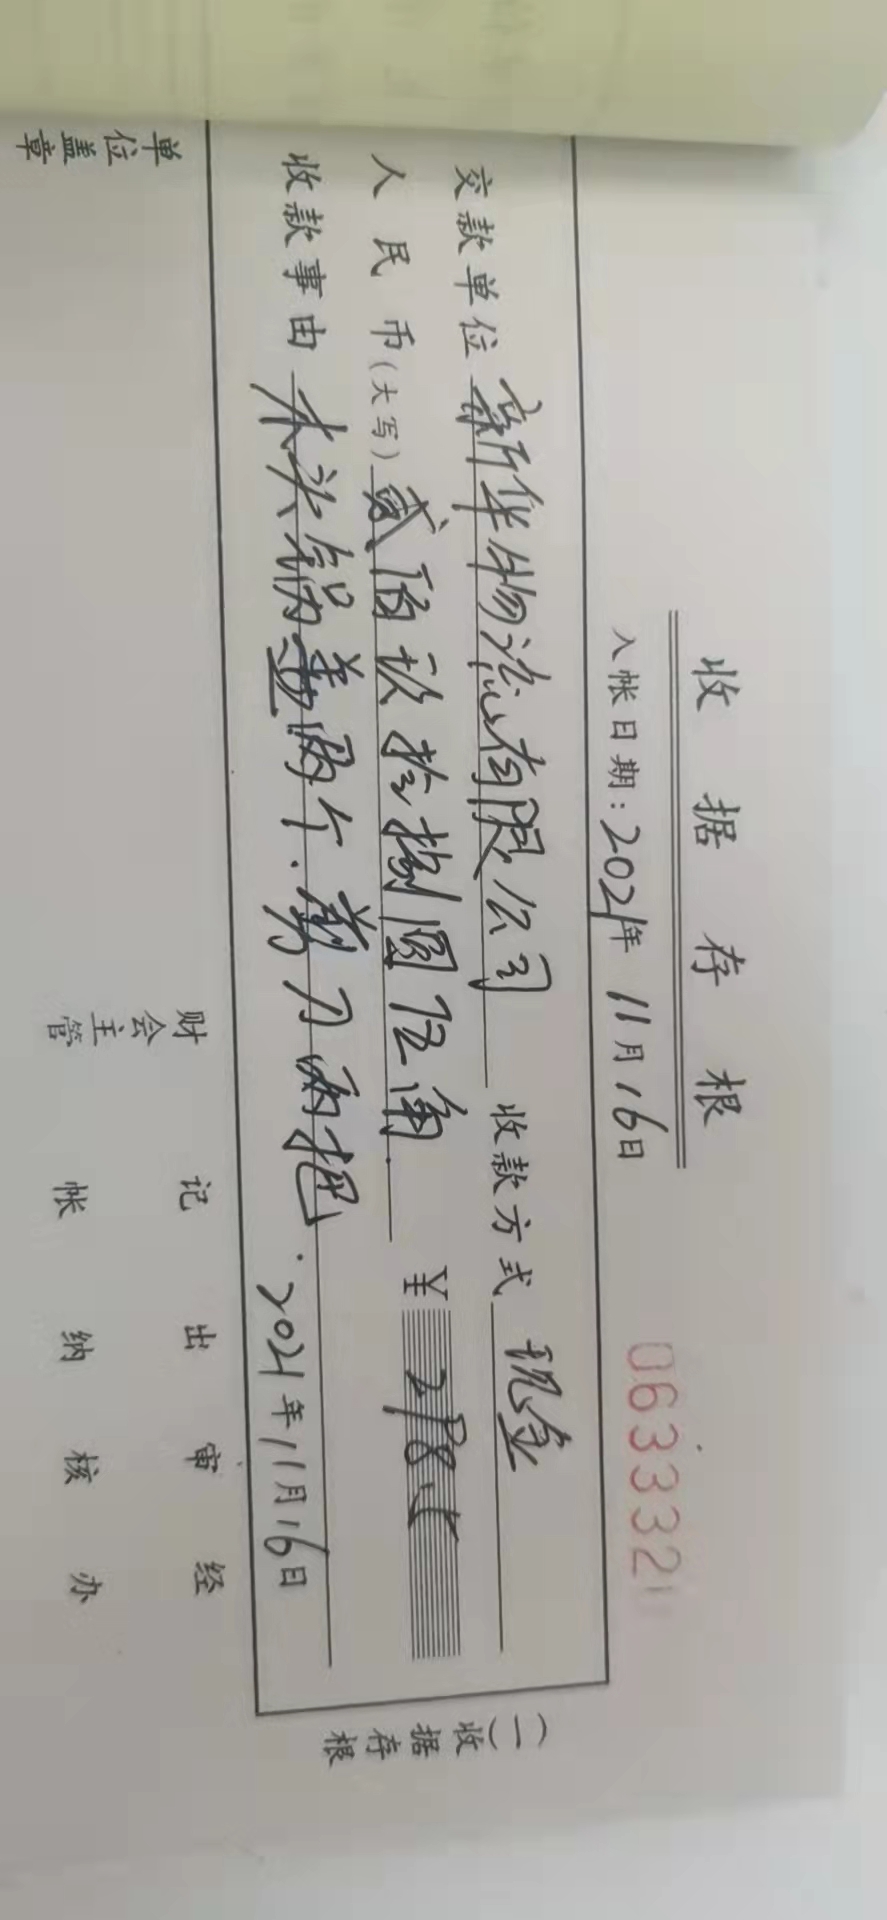 收据存根
入帐日期:2021年11月16日 0633320
交款单位 新华物流有限公司 收款方式 现金
人民币(大写) 贰佰玖拾捌圆伍角. ¥ 298.5
收款事由 木头锅盖两个.剪刀两把. 2021年11月16日
单位盖章 财会主管 记帐 出纳 审核 经办
(一)收据存根